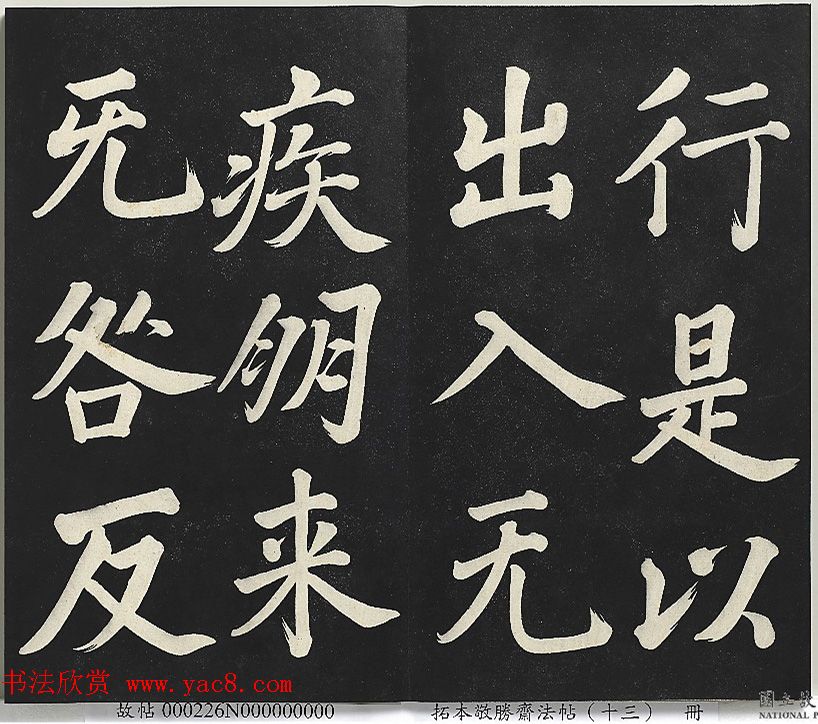 行是以
出入无
疾朋来
无咎反
书法欣赏 www.yac8.com
故帖 000226N000000000
拓本敬勝齋法帖(十三) 冊
國立故
NATIONAL P